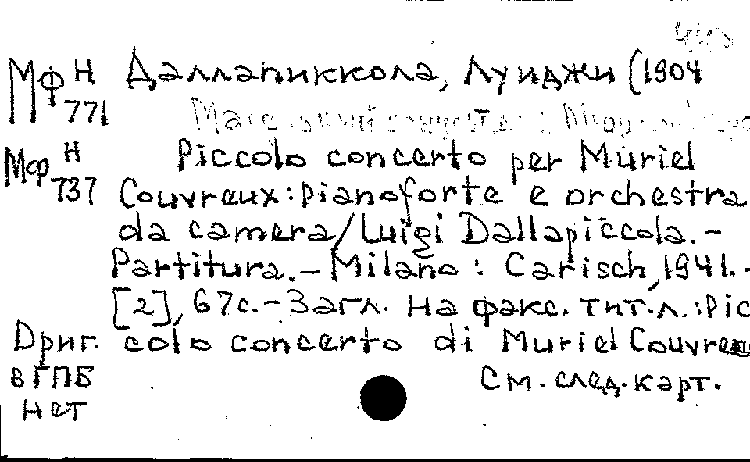 Мф Н 771 Даллапиккола, Луиджи (1904
Мф Н 737 Piccolo concerto per Muriel
Couvreux: pianoforte e orchestra
da camera/Luigi Dallapiccola.-
Partitura.-Milano: Carisch, 1941.-
[2], 67с.-Загл. на факс. тит.л.: Pic
Ориг. colo concerto di Muriel Couvreux
в ГПБ См. след. карт.
нет